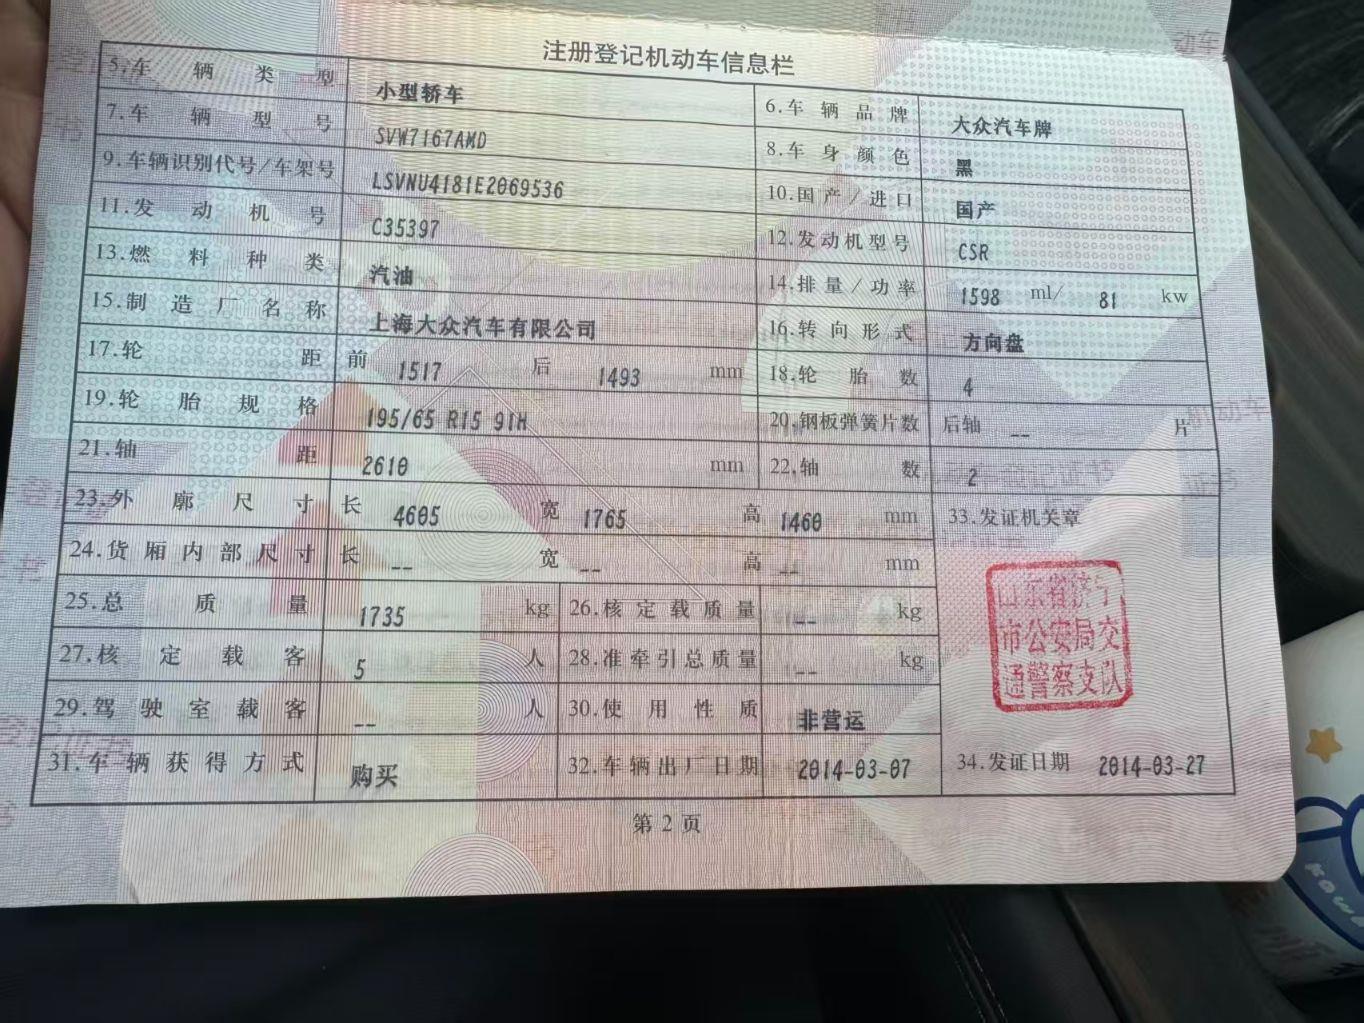 注册登记机动车信息栏
5.车辆类型 小型轿车 6.车辆品牌 大众汽车牌
7.车辆型号 SVW7167AMD 8.车身颜色 黑
9.车辆识别代号/车架号 LSVNU4181E2069536 10.国产/进口 国产
11.发动机号 C35397 12.发动机型号 CSR
13.燃料种类 汽油 14.排量/功率 1598 ml/ 81 kw
15.制造厂名称 上海大众汽车有限公司 16.转向形式 方向盘
17.轮距 前 1517 后 1493 mm 18.轮胎数 4
19.轮胎规格 195/65 R15 91H 20.钢板弹簧片数 后轴 -- 片
21.轴距 2610 mm 22.轴数 2
23.外廓尺寸 长 4605 宽 1765 高 1460 mm 33.发证机关章
24.货厢内部尺寸 长 -- 宽 -- 高 -- mm
25.总质量 1735 kg 26.核定载质量 -- kg
山东省济宁
市公安局交
通警察支队
27.核定载客 5 人 28.准牵引总质量 -- kg
29.驾驶室载客 -- 人 30.使用性质 非营运
31.车辆获得方式 购买 32.车辆出厂日期 2014-03-07 34.发证日期 2014-03-27
第 2 页